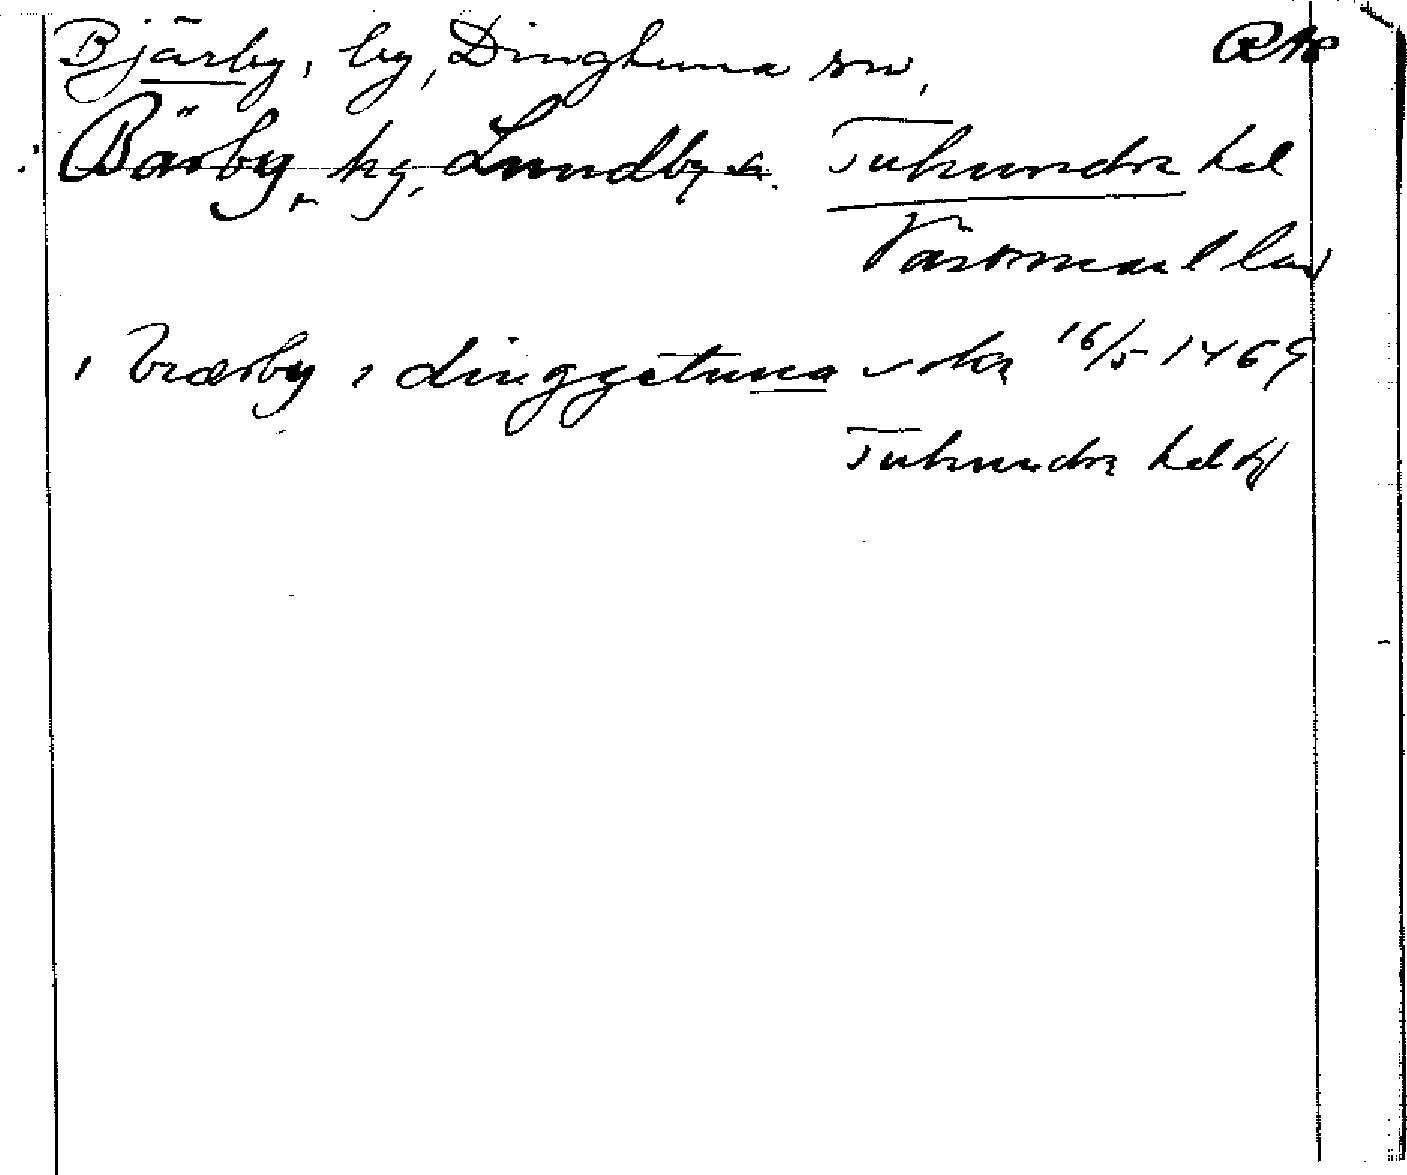 Bjärby, by, Dingtuna sn,
Bärby, by, Lundby sn. Tuhundra hd
Västmanl län
i biærby i dinggetuna sokn 16/5 1469
Tuhundra hd